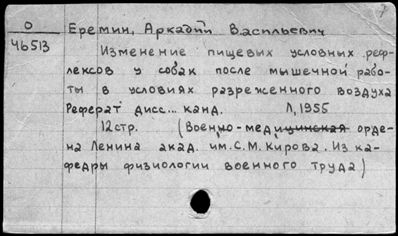 7
О Еремин, Аркадий Васильевич
46513 Изменение пищевых условных реф-
лексов у собак после мышечной рабо-
ты в условиях разреженного воздуха
Реферат дисс... канд. Л, 1955
12стр. (Военно-медицинская орде-
на Ленина акад. им. С.М. Кирова. Из ка-
федры физиологии военного труда)